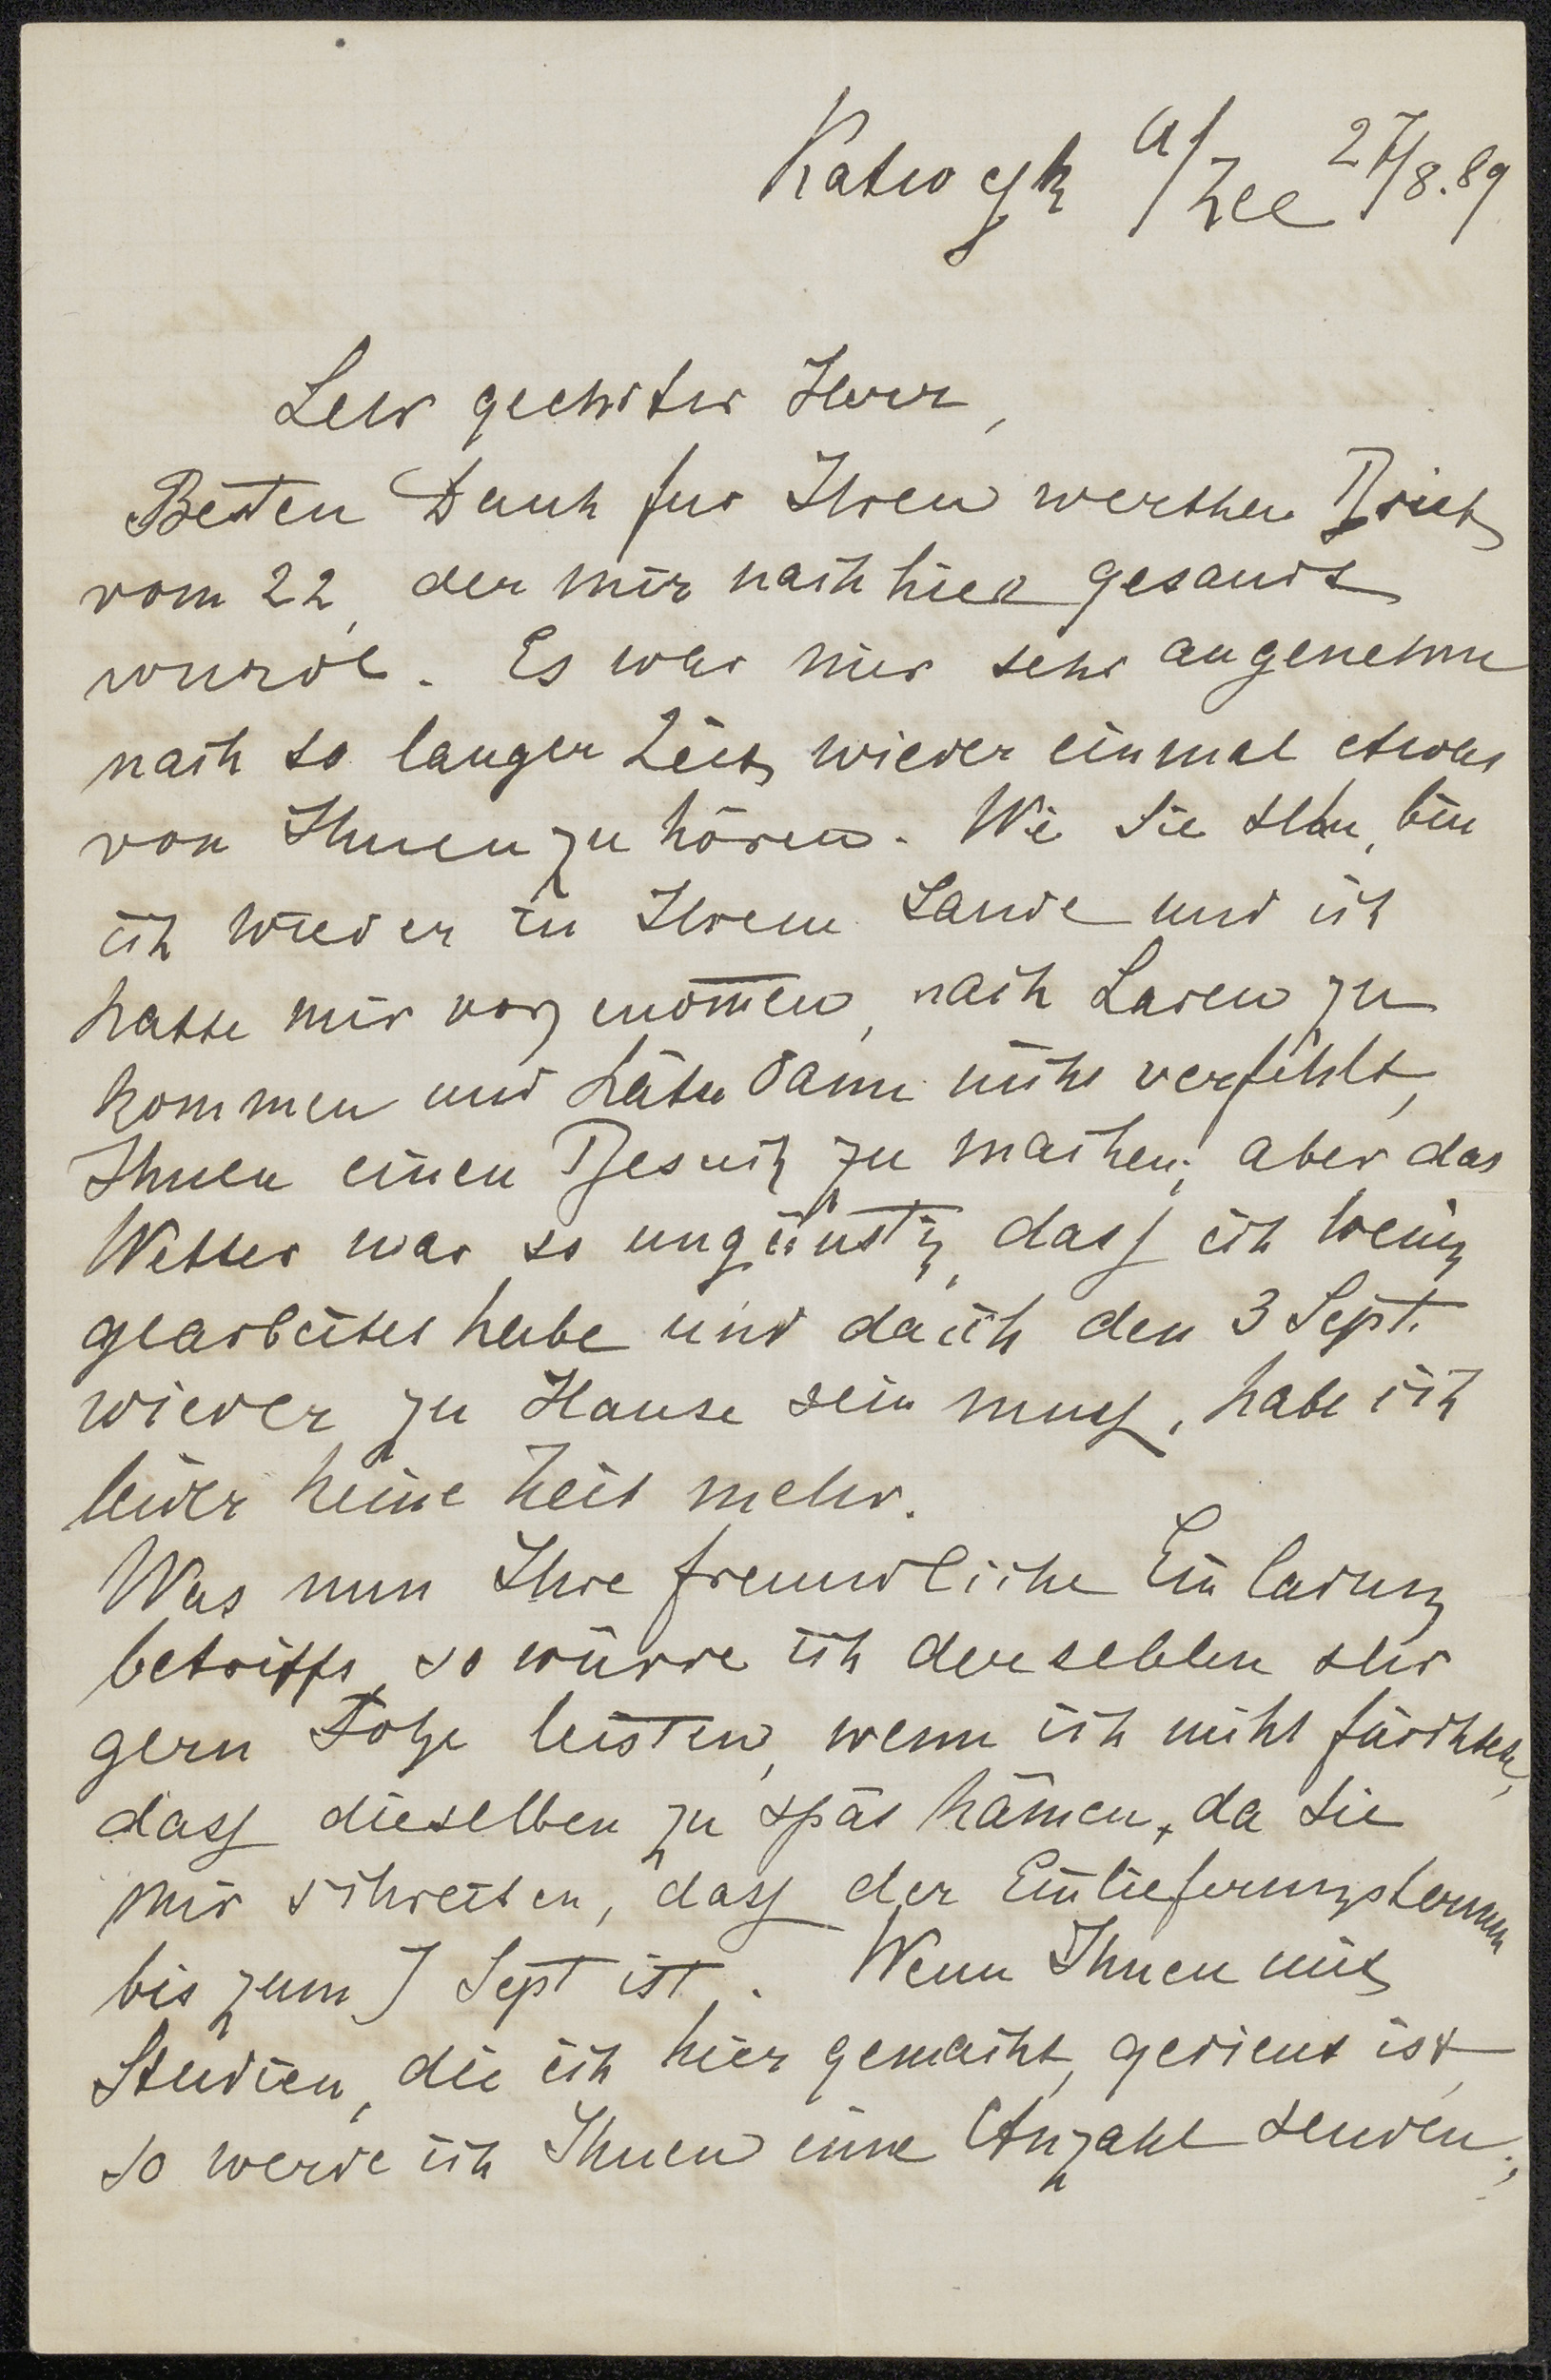 Katwijk a/Zee 27/8.89
Sehr geehrter Herr,
Besten Dank für Ihren werthen Brief
vom 22, der mir nach hier gesandt
wurde. Es war mir sehr angenehm
nach so langer Zeit wieder einmal etwas
von Ihnen zu hören. Wie Sie sehn, bin
ich wieder in Ihrem Lande und ich
hatte mir vorgenom̄en, nach Laren zu
kommen und hätte dann nicht verfehlt,
Ihnen einen Besuch zu machen; aber das
Wetter war so ungünstig, dass ich wenig
gearbeitet habe und da ich den 3 Sept.
wieder zu Hause sein muss, habe ich
leider keine Zeit mehr.
Was nun Ihre freundliche Einladung
betrifft, so würde ich derselben sehr
gern Folge leisten, wenn ich nicht fürchtete,
dass dieselben zu spät kämen, da Sie
mir schreiben, dass der Einlieferungstermin
bis zum 7 Sept ist. Wenn Ihnen mit
Studien, die ich hier gemacht, gedient ist,
so werde ich Ihnen eine Anzahl senden;